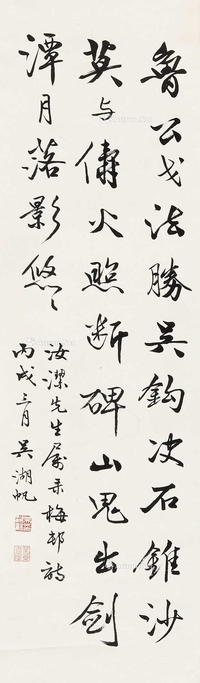 魯公戈法勝吳鈎決石錐沙
莫与儔火照断碑山鬼出劍
潭月落影悠〻
汝潔先生屬录梅邨詩
丙戌三月吳湖帆